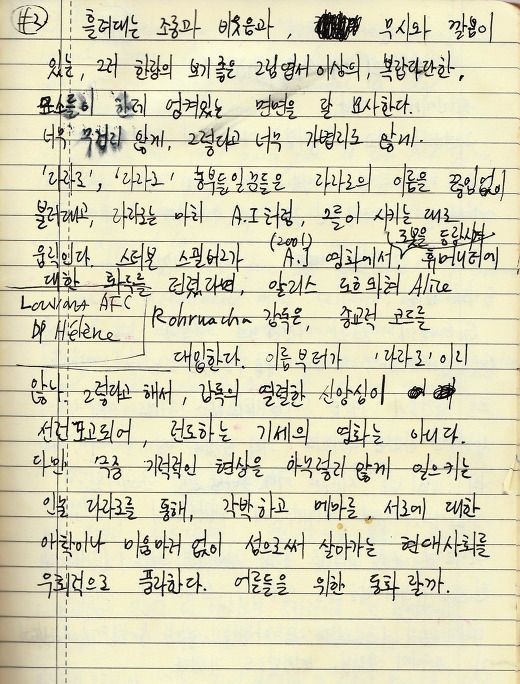 #3
흘려대는 조롱과 비웃음과, 무시와 깔봄이
있는, 그러한 보기좋은 그림엽서 이상의, 복잡다단한,
요소들이 한데 엉켜있는 면면을 잘 묘사한다.
너무 무겁지 않게, 그렇다고 너무 가볍지도 않게.
'라자로', '라자로' 농부들 일꾼들은 라자로의 이름을 끊임없이
불러대고, 라자로는 마치 A.I처럼, 그들이 시키는 대로
움직인다. 스티븐 스필버그가 (2001) A.I 영화에서, 로봇을 등장시켜 휴머니티에
대한 화두를 던졌다면, 알리스 로르와허 Alice
Rohrwacha 감독은, 종교적 코드를
대입한다. 이름부터가 '라자로'이지
않나. 그렇다고 해서, 감독의 열렬한 신앙심이
선전포고되어, 전도하는 기세의 영화는 아니다.
다만 무중 기적적인 현상을 아무렇지 않게 일으키는
인물 라자로를 통해, 각박하고 메마른, 서로에 대한
야학이나 미움마저 없이 섬으로써 살아가는 현대사회를
우회적으로 풀이한다. 어른들을 위한 동화랄까.
AFC
Hélène